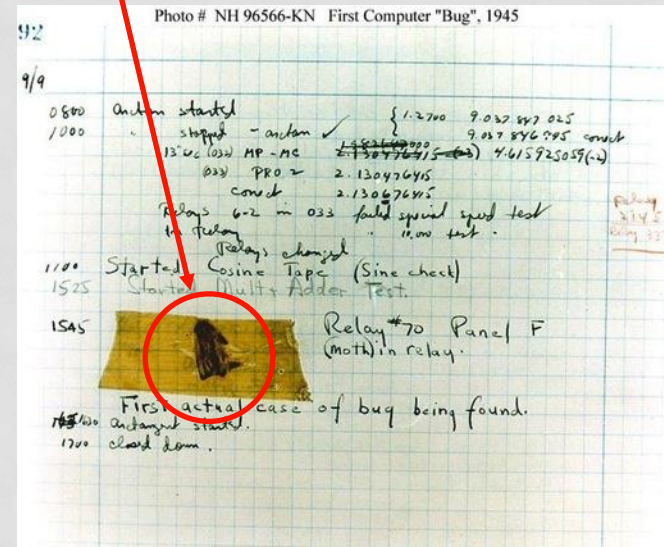 Photo # NH 96566-KN First Computer "Bug", 1945
92
9/9
0800 antan started { 1.2700 9.037 847 025
1000 " stopped - antan ✓ 9.037 846 995 correct
13"uc (033) MP-MC 2.130476415 4.615925059(-2)
(033) PRO 2 2.130476415
correct 2.130676415
Relays 6-2 in 033 failed special speed test
in relay " 10.000 test.
Relays changed
1100 Started Cosine Tape (Sine check)
1525 Started Mult+Adder Test.
1545 Relay #70 Panel F
(moth) in relay.
First actual case of bug being found.
1630 arctangent started.
1700 closed down.